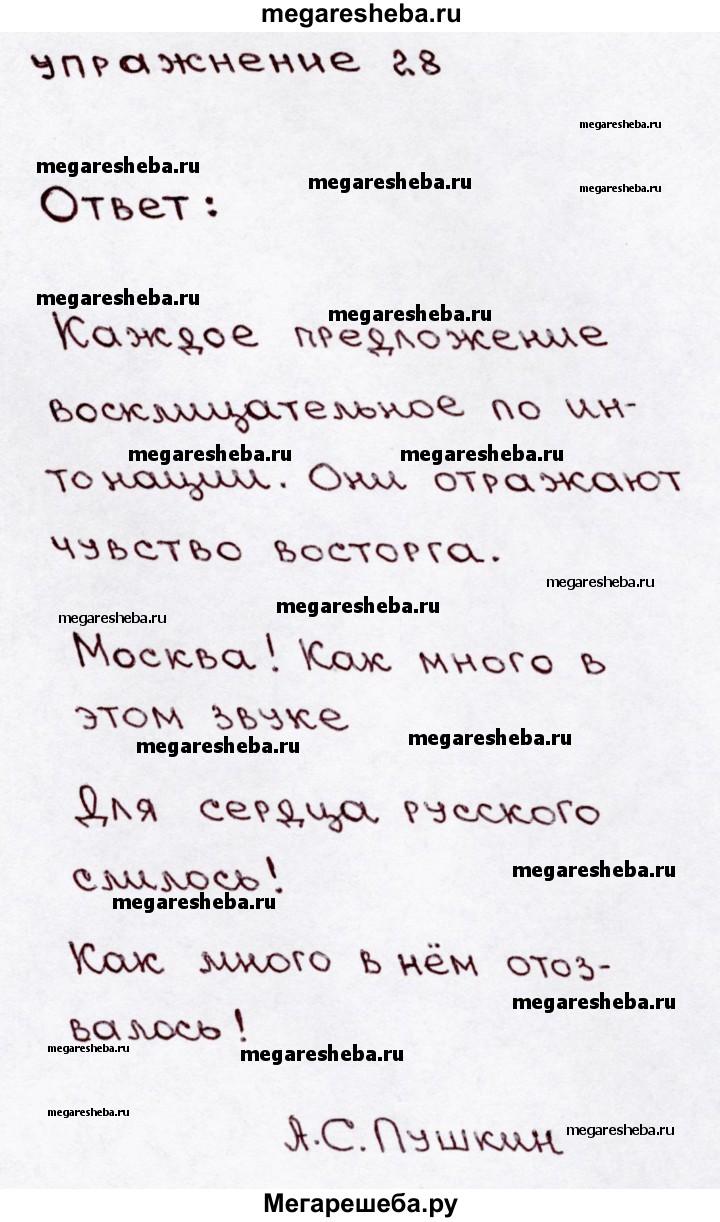 megaresheba.ru
упражнение 28
megaresheba.ru
megaresheba.ru
megaresheba.ru
megaresheba.ru
Ответ:
megaresheba.ru
megaresheba.ru
Каждое предложение
восклицательное по ин-
megaresheba.ru
megaresheba.ru
тонации. Они отражают
чувство восторга.
megaresheba.ru
megaresheba.ru
megaresheba.ru
Москва! Как много в
этом звуке
megaresheba.ru
megaresheba.ru
Для сердца русского
слилось!
megaresheba.ru
megaresheba.ru
Как много в нём отоз-
megaresheba.ru
валось!
megaresheba.ru
megaresheba.ru
megaresheba.ru
А.С.Пушкин
megaresheba.ru
Мегарешеба.ру